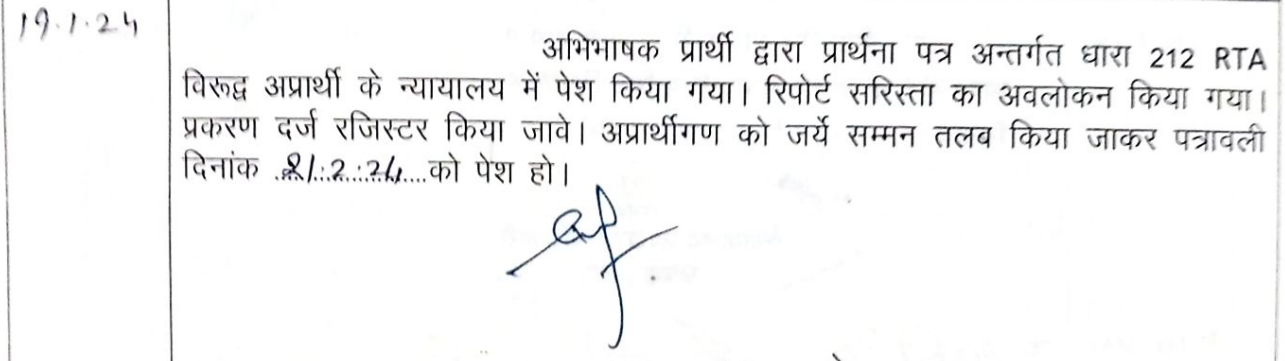 19.1.24
अभिभाषक प्रार्थी द्वारा प्रार्थना पत्र अन्तर्गत धारा 212 RTA
विरूद्व अप्रार्थी के न्यायालय में पेश किया गया। रिपोर्ट सरिस्ता का अवलोकन किया गया।
प्रकरण दर्ज रजिस्टर किया जावे। अप्रार्थीगण को जर्ये सम्मन तलब किया जाकर पत्रावली
दिनांक 21.2.24 को पेश हो।